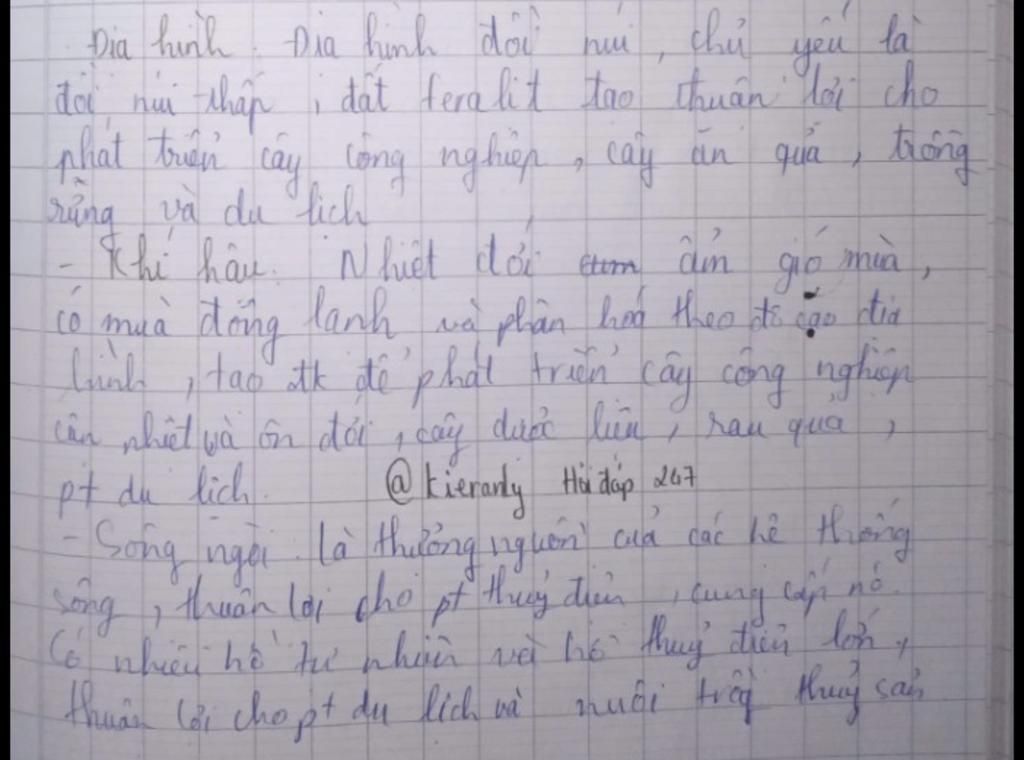 Địa hình. Địa hình đồi núi, chủ yếu là
đồi núi thấp, đất feralit tạo thuận lợi cho
phát triển cây công nghiệp, cây ăn quả, trồng
rừng và du lịch
- Khí hậu. Nhiệt đới ẩm gió mùa,
có mùa đông lạnh và phân hoá theo độ cao địa
hình, tạo đk để phát triển cây công nghiệp
cận nhiệt và ôn đới, cây dược liệu, rau quả,
pt du lịch. @kieranly Hỏi đáp 247
- Sông ngòi. là thượng nguồn của các hệ thống
sông, thuận lợi cho pt thuỷ điện, cung cấp nc.
Có nhiều hồ tự nhiên và hồ thuỷ điện lớn,
thuận lợi cho pt du lịch và nuôi trồng thuỷ sản